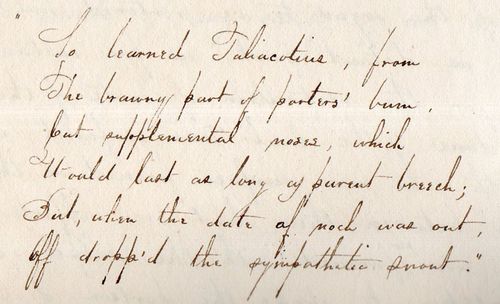 "So learned Taliacotius, from
The brawny part of porters' bum,
Cut supplemental noses, which
Would last as long as parent breech;
But, when the date of nock was out,
Off dropp'd the sympathetic snout."